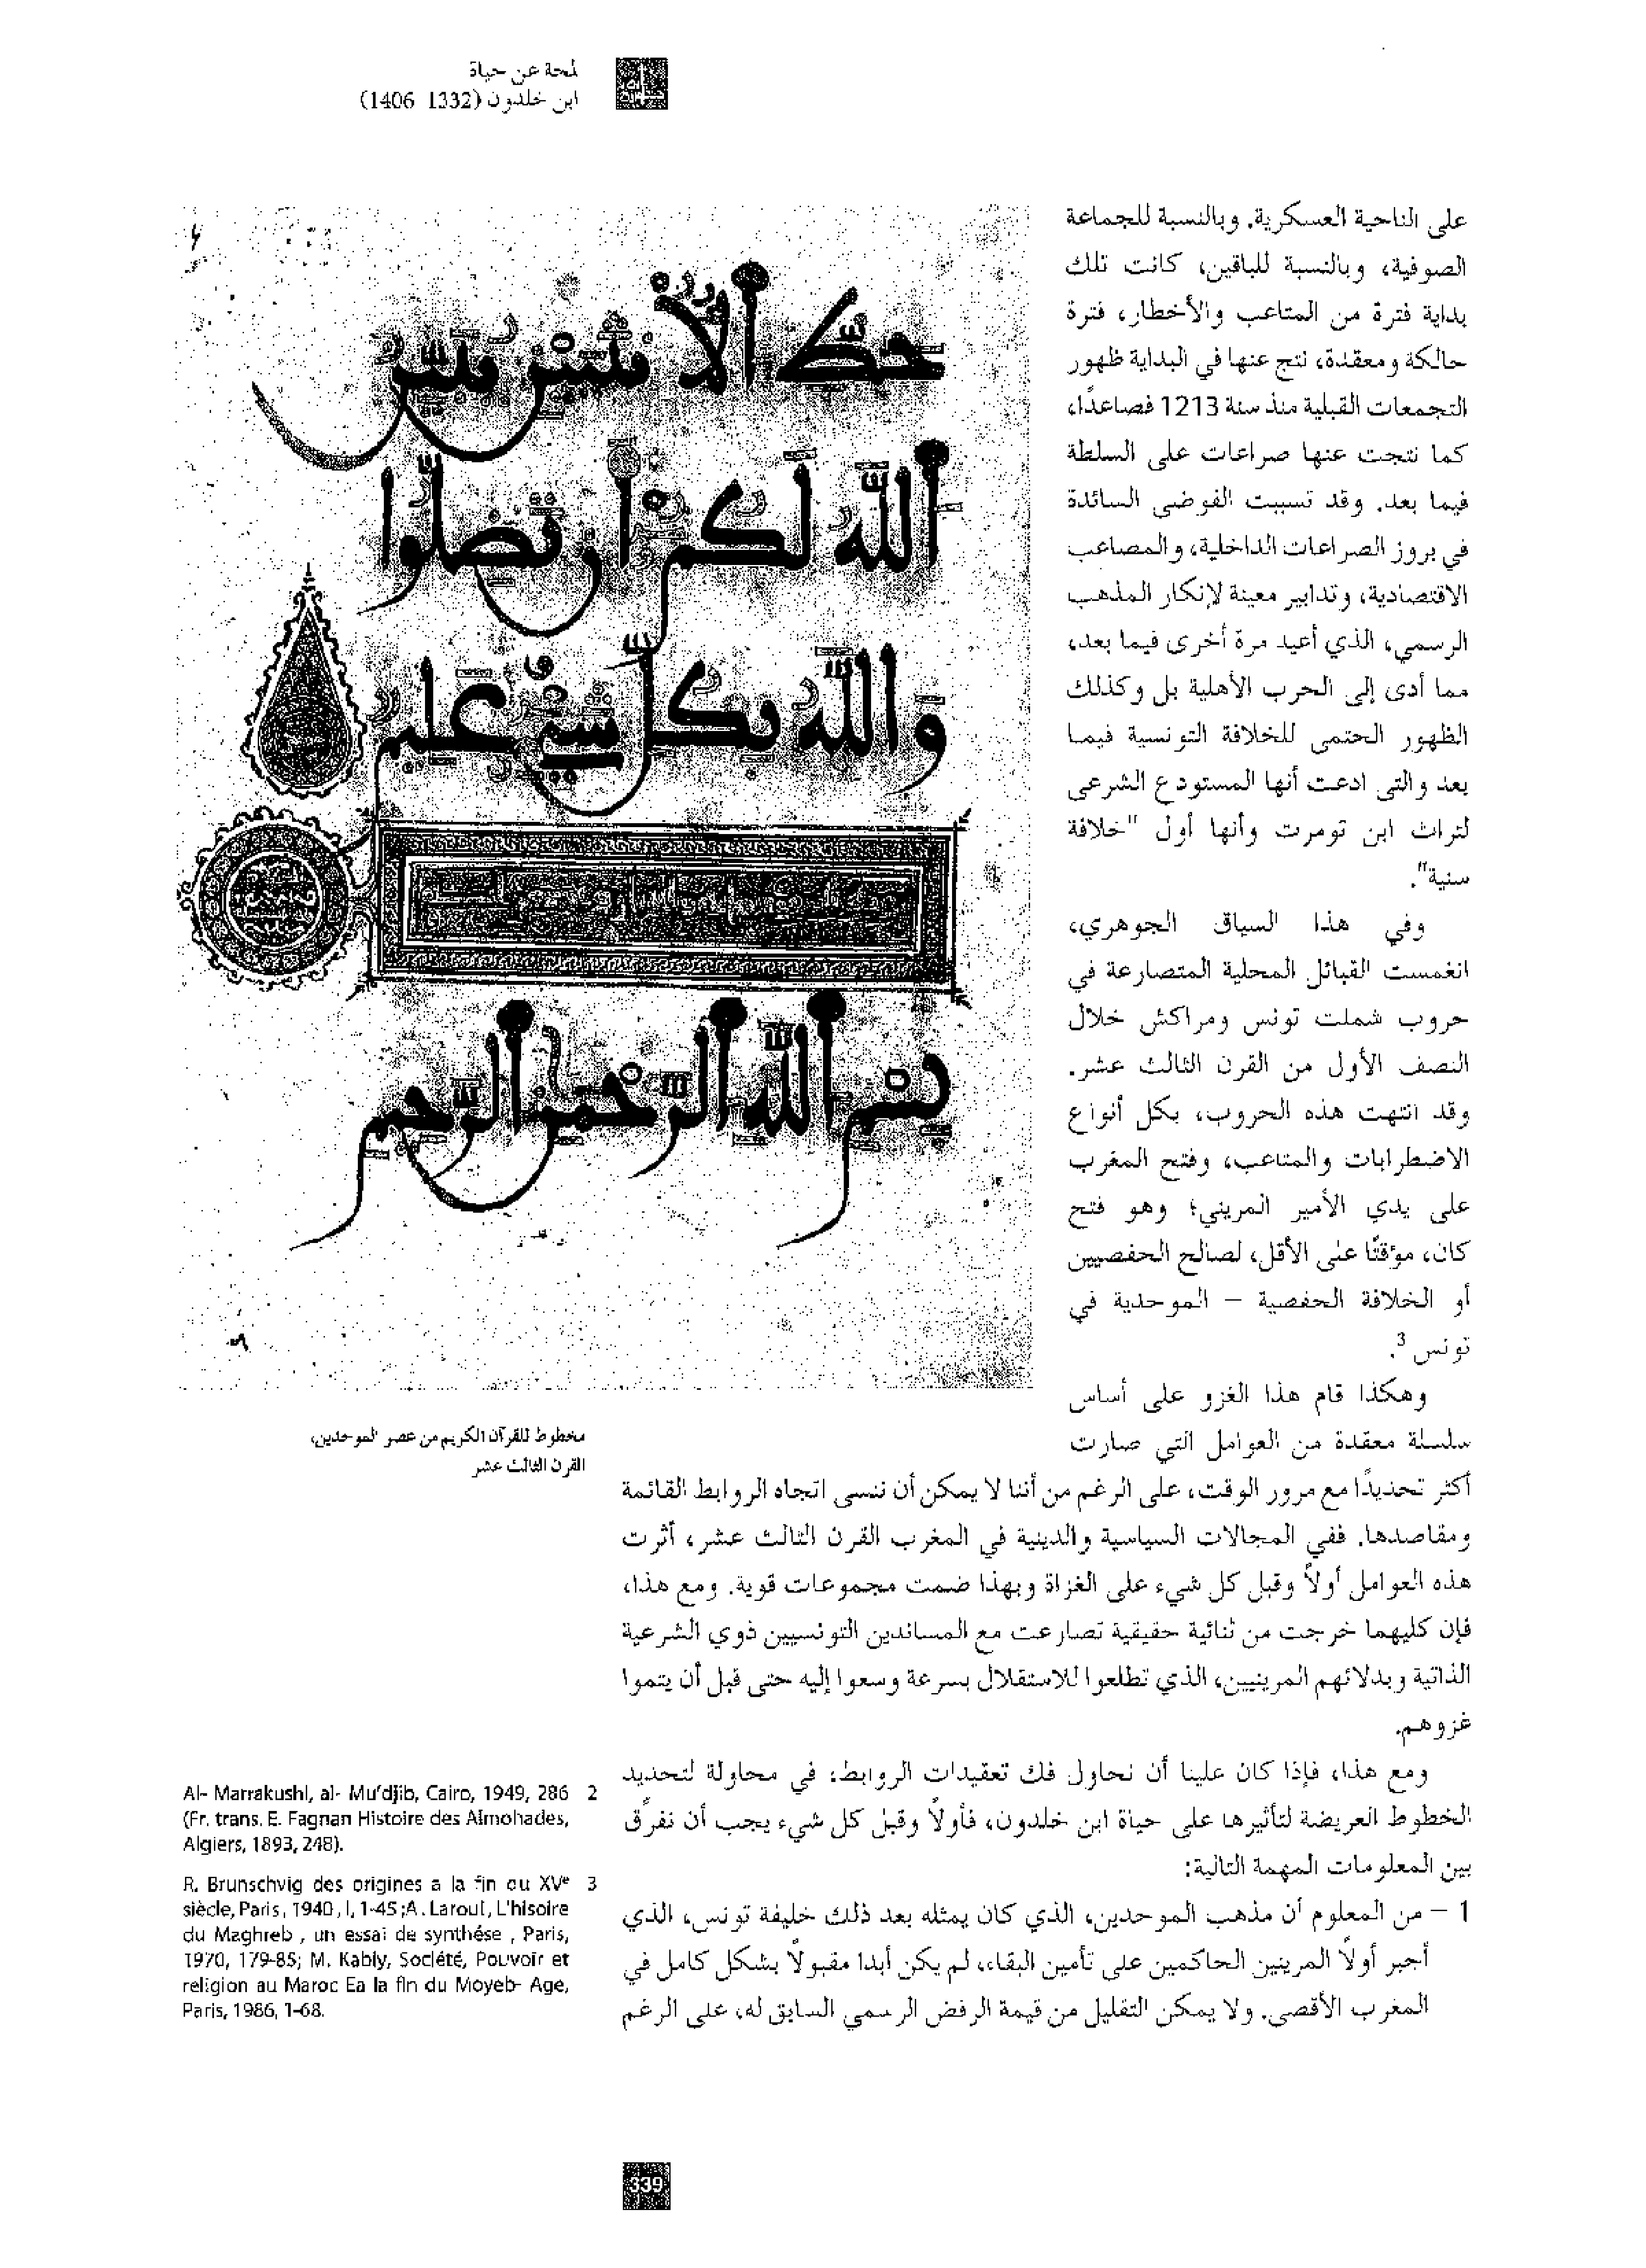 لمحة عن حياة
ابن خلدون (1332 1406)
على الناحية العسكرية. وبالنسبة للجماعة
الصوفية، وبالنسبة للباقين، كانت تلك
بداية فترة من المتاعب والأخطار، فترة
حالكة ومعقدة، نتج عنها في البداية ظهور
التجمعات القبلية منذ سنة 1213 فصاعدًا،
كما نتجت عنها صراعات على السلطة
فيما بعد. وقد تسببت الفوضى السائدة
في بروز الصراعات الداخلية، والمصاعب
الاقتصادية، وتدابير معينة لإنكار المذهب
الرسمي، الذي أعيد مرة أخرى فيما بعد،
مما أدى إلى الحرب الأهلية بل وكذلك
الظهور الحتمى للخلافة التونسية فيما
بعد والتى ادعت أنها المستودع الشرعى
لتراث ابن تومرت وأنها أول "خلافة
سنية".
وفي هذا السياق الجوهري،
انغمست القبائل المحلية المتصارعة في
حروب شملت تونس ومراكش خلال
النصف الأول من القرن الثالث عشر.
وقد انتهت هذه الحروب، بكل أنواع
الاضطرابات والمتاعب، وفتح المغرب
على يدي الأمير المريني؛ وهو فتح
كان، مؤقتًا على الأقل، لصالح الحفصيين
أو الخلافة الحفصية – الموحدية في
تونس 3.
وهكذا قام هذا الغزو على أساس
سلسلة معقدة من العوامل التي صارت
أكثر تحديدًا مع مرور الوقت، على الرغم من أننا لا يمكن أن ننسى اتجاه الروابط القائمة
ومقاصدها. ففي المجالات السياسية والدينية في المغرب القرن الثالث عشر، أثرت
هذه العوامل أولاً وقبل كل شيء على الغزاة وبهذا ضمت مجموعات قوية. ومع هذا،
فإن كليهما خرجت من ثنائية حقيقية تصارعت مع المساندين التونسيين ذوي الشرعية
الذاتية وبدلائهم المرينيين، الذي تطلعوا للاستقلال بسرعة وسعوا إليه حتى قبل أن يتموا
غزوهم.
ومع هذا، فإذا كان علينا أن نحاول فك تعقيدات الروابط، في محاولة لتحديد
الخطوط العريضة لتأثيرها على حياة ابن خلدون، فأولاً وقبل كل شيء يجب أن نفرّق
بين المعلومات المهمة التالية:
1 – من المعلوم أن مذهب الموحدين، الذي كان يمثله بعد ذلك خليفة تونس، الذي
أجبر أولاً المرينين الحاكمين على تأمين البقاء، لم يكن أبدا مقبولاً بشكل كامل في
المغرب الأقصى. ولا يمكن التقليل من قيمة الرفض الرسمي السابق له، على الرغم
حكم الا نفسير فليس
الله لكم ان تضلوا
والله بكل شيء عليم
بسم الله الرحمن الرحيم
مخطوط للقرآن الكريم من عصر الموحدين،
القرن الثالث عشر
Al- Marrakushl, al- Mu'djib, Cairo, 1949, 286 2
(Fr. trans. E. Fagnan Histoire des Almohades,
Algiers, 1893, 248).
R. Brunschvig des origines a la fin ou XVe 3
siècle, Paris, 1940, I, 1-45 ;A. Laroul, L'hisoire
du Maghreb , un essai de synthése , Paris,
1970, 179-85; M. Kably, Société, Pouvoir et
religion au Maroc Ea la fln du Moyeb- Age,
Paris, 1986, 1-68.
339